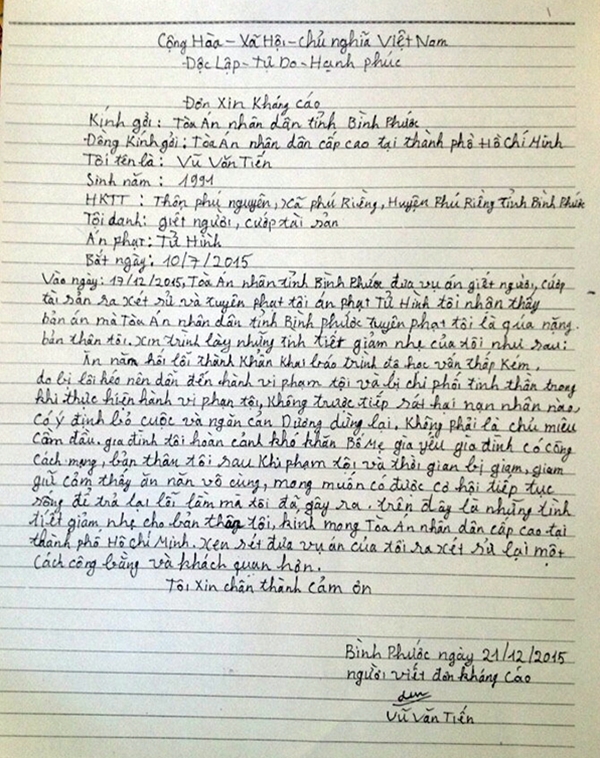 1
Cộng Hòa - Xã Hội - Chủ nghĩa Việt Nam
Độc Lập - Tự Do - Hạnh phúc
Đơn Xin Kháng cáo
Kính gởi : Tòa Án nhân dân tỉnh Bình Phước
Đồng Kính gởi : Tòa Án nhân dân cấp cao tại thành phố Hồ Chí Minh
Tôi tên là : Vũ Văn Tiến
Sinh năm : 1991
HKTT : Thôn phú nguyên, xã phú Riềng, Huyện Phú Riềng tỉnh Bình Phước
Tội danh: giết người, cướp tài sản
Án phạt : Tử Hình
Bắt ngày : 10/7/2015
Vào ngày : 17/12/2015, Tòa Án nhân tỉnh Bình Phước đưa vụ án giết người, cướp
tài sản ra xét sử và tuyên phạt tôi án phạt Tử Hình tôi nhận thấy
bản án mà Tòa Án nhân dân tỉnh Bình Phước tuyên phạt tôi là qúa nặng.
bản thân tôi, xin trình lày những tình tiết giảm nhẹ của tôi như sau:
Ăn năn hối lỗi thành Khẩn Khai báo trình độ học vấn thấp Kém,
do bị lôi kéo nên dẫn đến hành vi phạm tội và bị chi phối tinh thần trong
khi thực hiện hành vi phạn tội, Không trược tiếp sát hại nạn nhân nào.
Có ý định bỏ cuộc và ngăn cản Dương dừng lại. Không phải là chủ miêu
Cầm đầu. gia đình tôi hoàn cảnh khó khăn Bố Mẹ già yếu gia đình có công
Cách mạng, bản thân tôi sau Khi phạm tội và thời gian bị giạm, giam
giữ cảm thấy ăn năn vô cùng, mong muốn có được cơ hội tiếp tục
sống để trả lại lỗi lầm mà tôi đã gây ra. trên đây là những tình
tiết giảm nhẹ cho bản thân tội, kính mong Tòa Án nhân dân cấp cao tại
thành phố Hồ Chí Minh. Xen sét đưa vụ án của tôi ra xét sử lại một
Cách công bằng và khách quan hơn.
Tôi Xin chân thành Cảm ơn
Bình Phước ngày 21/12/2015
người viết đơn kháng Cáo
Vũ Văn Tiến